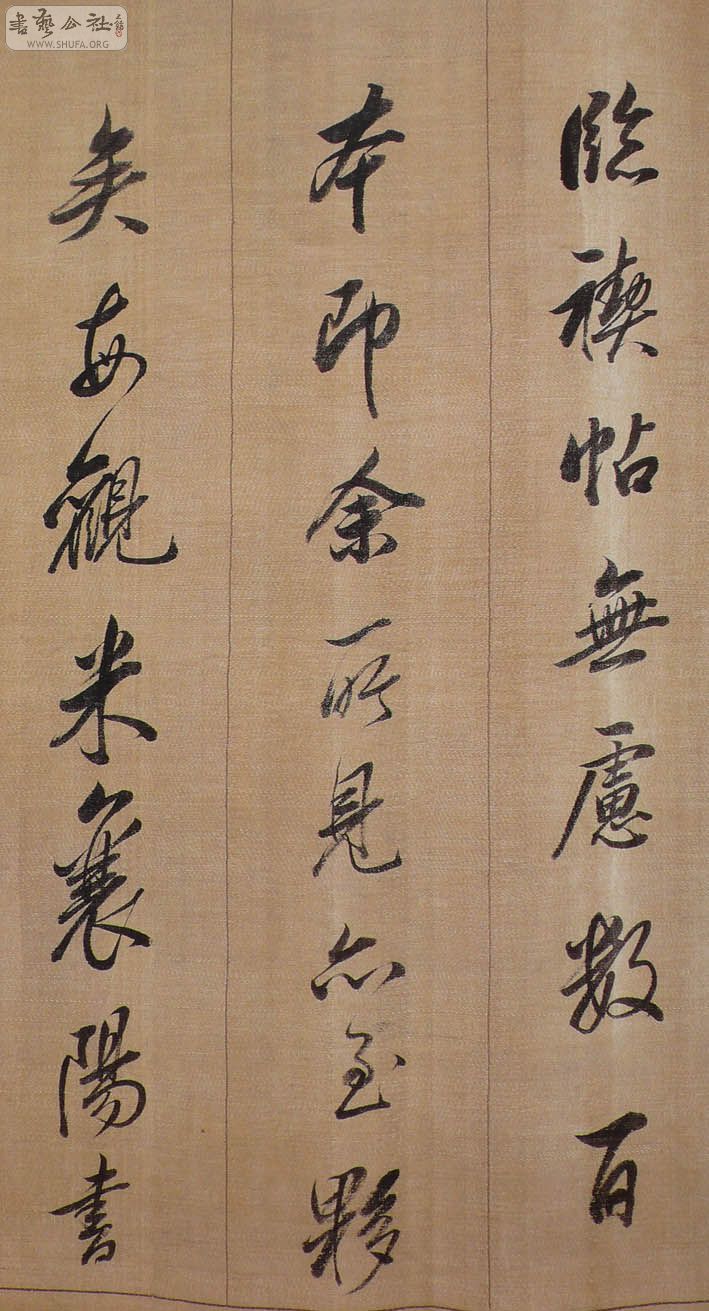 臨禊帖無慮數百
本即余所見亦至夥
矣每觀米襄陽書
書藝公社
WWW.SHUFA.ORG